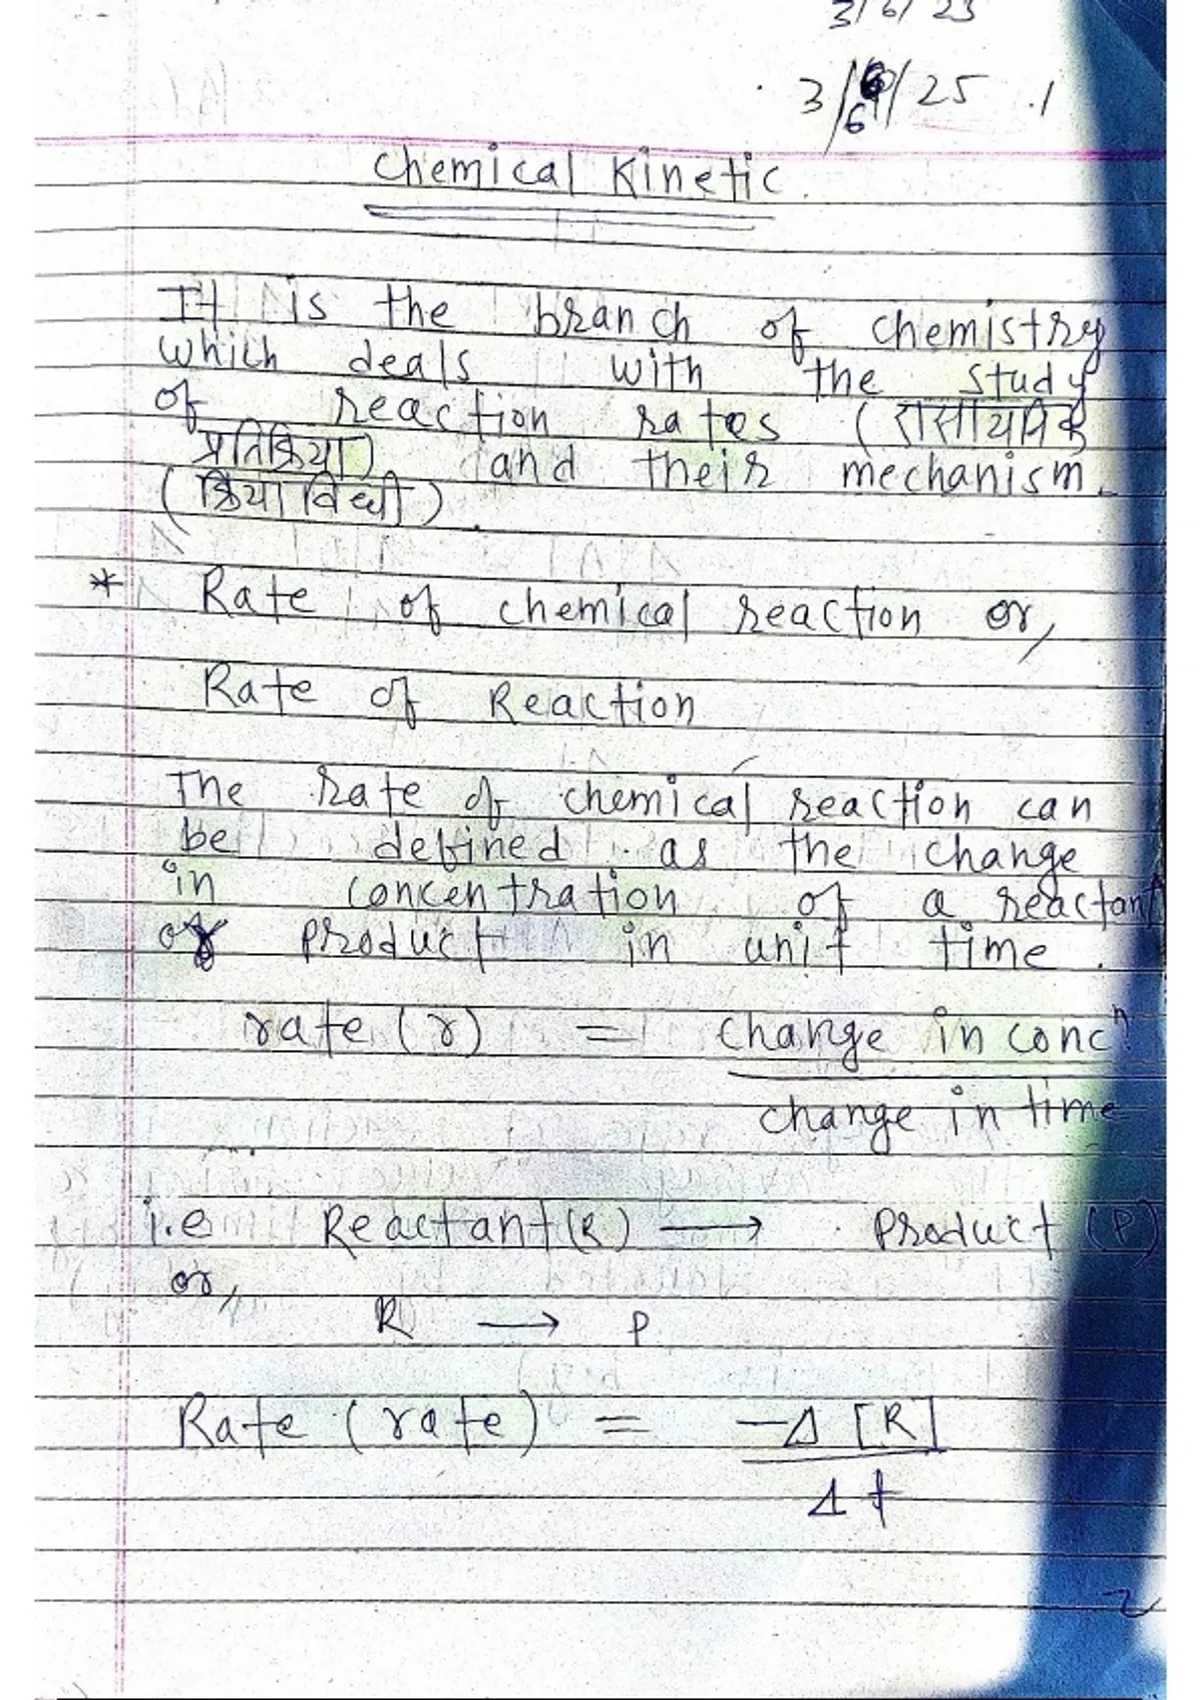 3/6/25
3/6/25 .1
Chemical Kinetic.
It is the branch of chemistry
which deals with the study
of reaction rates (रासायनिक
प्रतिक्रिया) and their mechanism.
(क्रिया विधी).
* Rate of chemical reaction or,
Rate of Reaction
The rate of chemical reaction can
be defined as the change
in concentration of a reactant
or product in unit time.
rate (r) = change in concⁿ
change in time
i.e Reactant (R) ⟶ Product (P)
or,
R ⟶ P
Rate (rate) = -Δ [R]
Δt